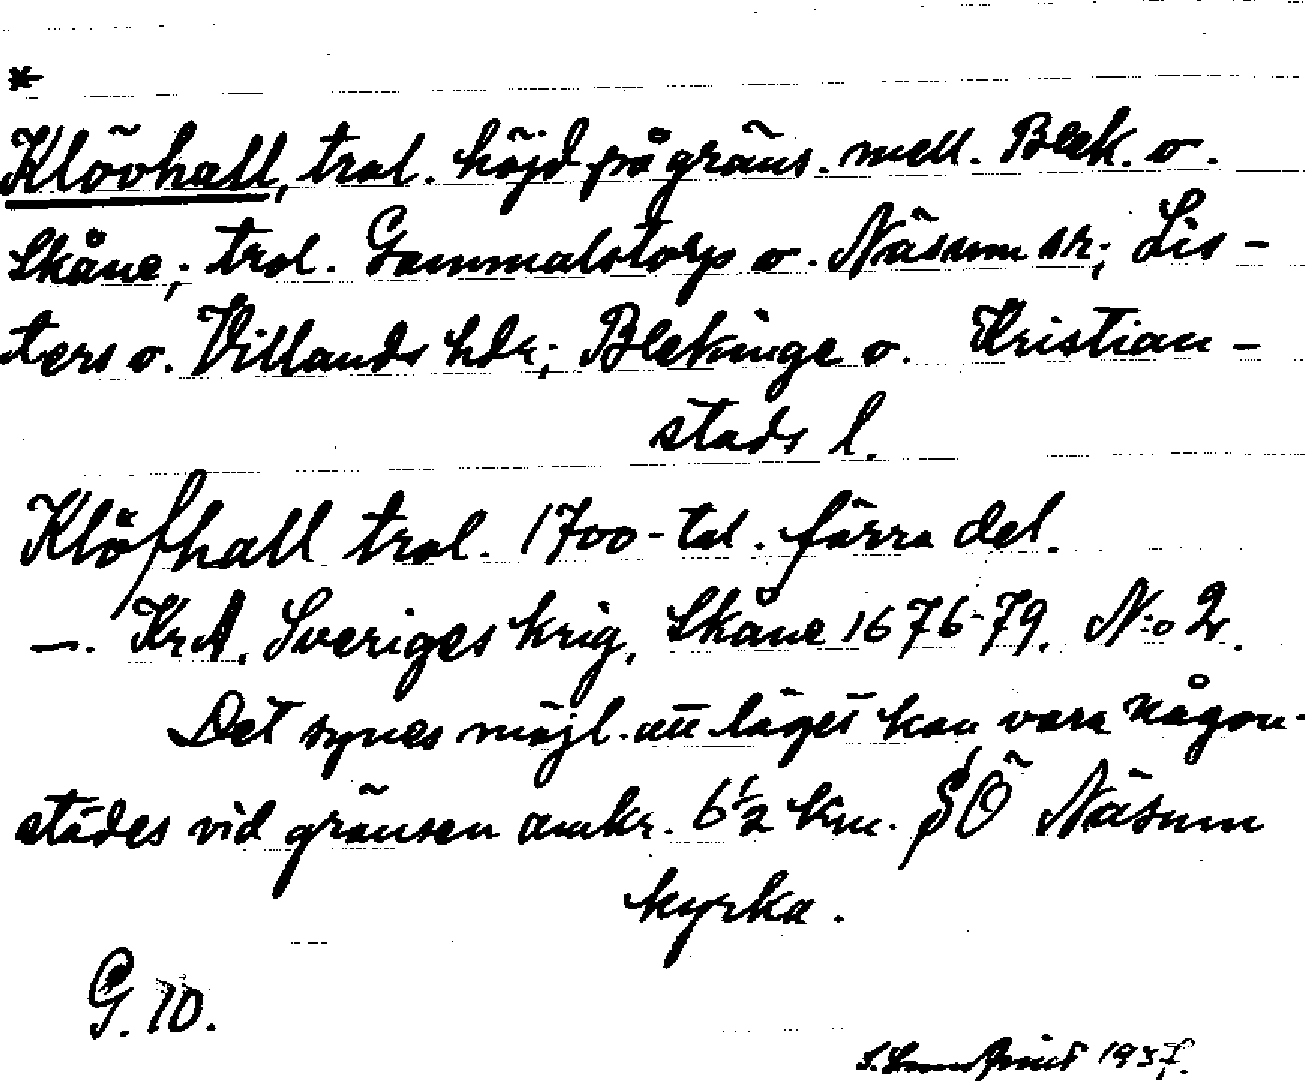 *
Klövhall, trol. höjd på gräns. mell. Blek. o.
Skåne; trol. Gammalstorp o. Näsum snr; Lis-
ters o. Villands hdr; Blekinge o. Kristian-
stads l.
Klöfhall trol. 1700-tal. förra del.
—. KrA. Sveriges krig, Skåne 1676-79. N:o 2.
Det synes möjl. att läget kan vara någon-
städes vid gränsen omkr. 6½ km. Ö Näsum
kyrka.
G. 10.
1937.